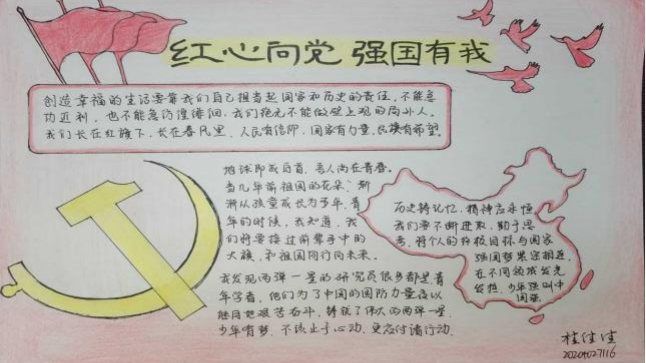 红心向党 强国有我
创造幸福的生活要靠我们自己担当起国家和历史的责任，不能急
功近利，也不能急彷徨徘徊，我们绝无不能做壁上观的局外人。
我们长在红旗下，长在春风里，人民有信仰，国家有力量，民族有希望。
地球即我后首，吾人尚在青春。
当几年前祖国的花朵，渐
渐从孩童成长为少年，青
年的时候，我知道，我
们将要接过前辈手中的
火炬，和祖国同行向未来。
我发现两弹一星的研究员很多都是青
年学者，他们为了中国的国防力量夜以
继日地艰苦奋斗，铸就了伟大的两弹一星，
少年有梦，不终止于心动，更应付诸行动。
历史铸记忆，精神应永恒
我们要不断进取，勤于思
考，将个人的目标与国家
强国梦紧密相连
在不同领域发光
发热，少年强则中
国强
桂佳佳
2020407116